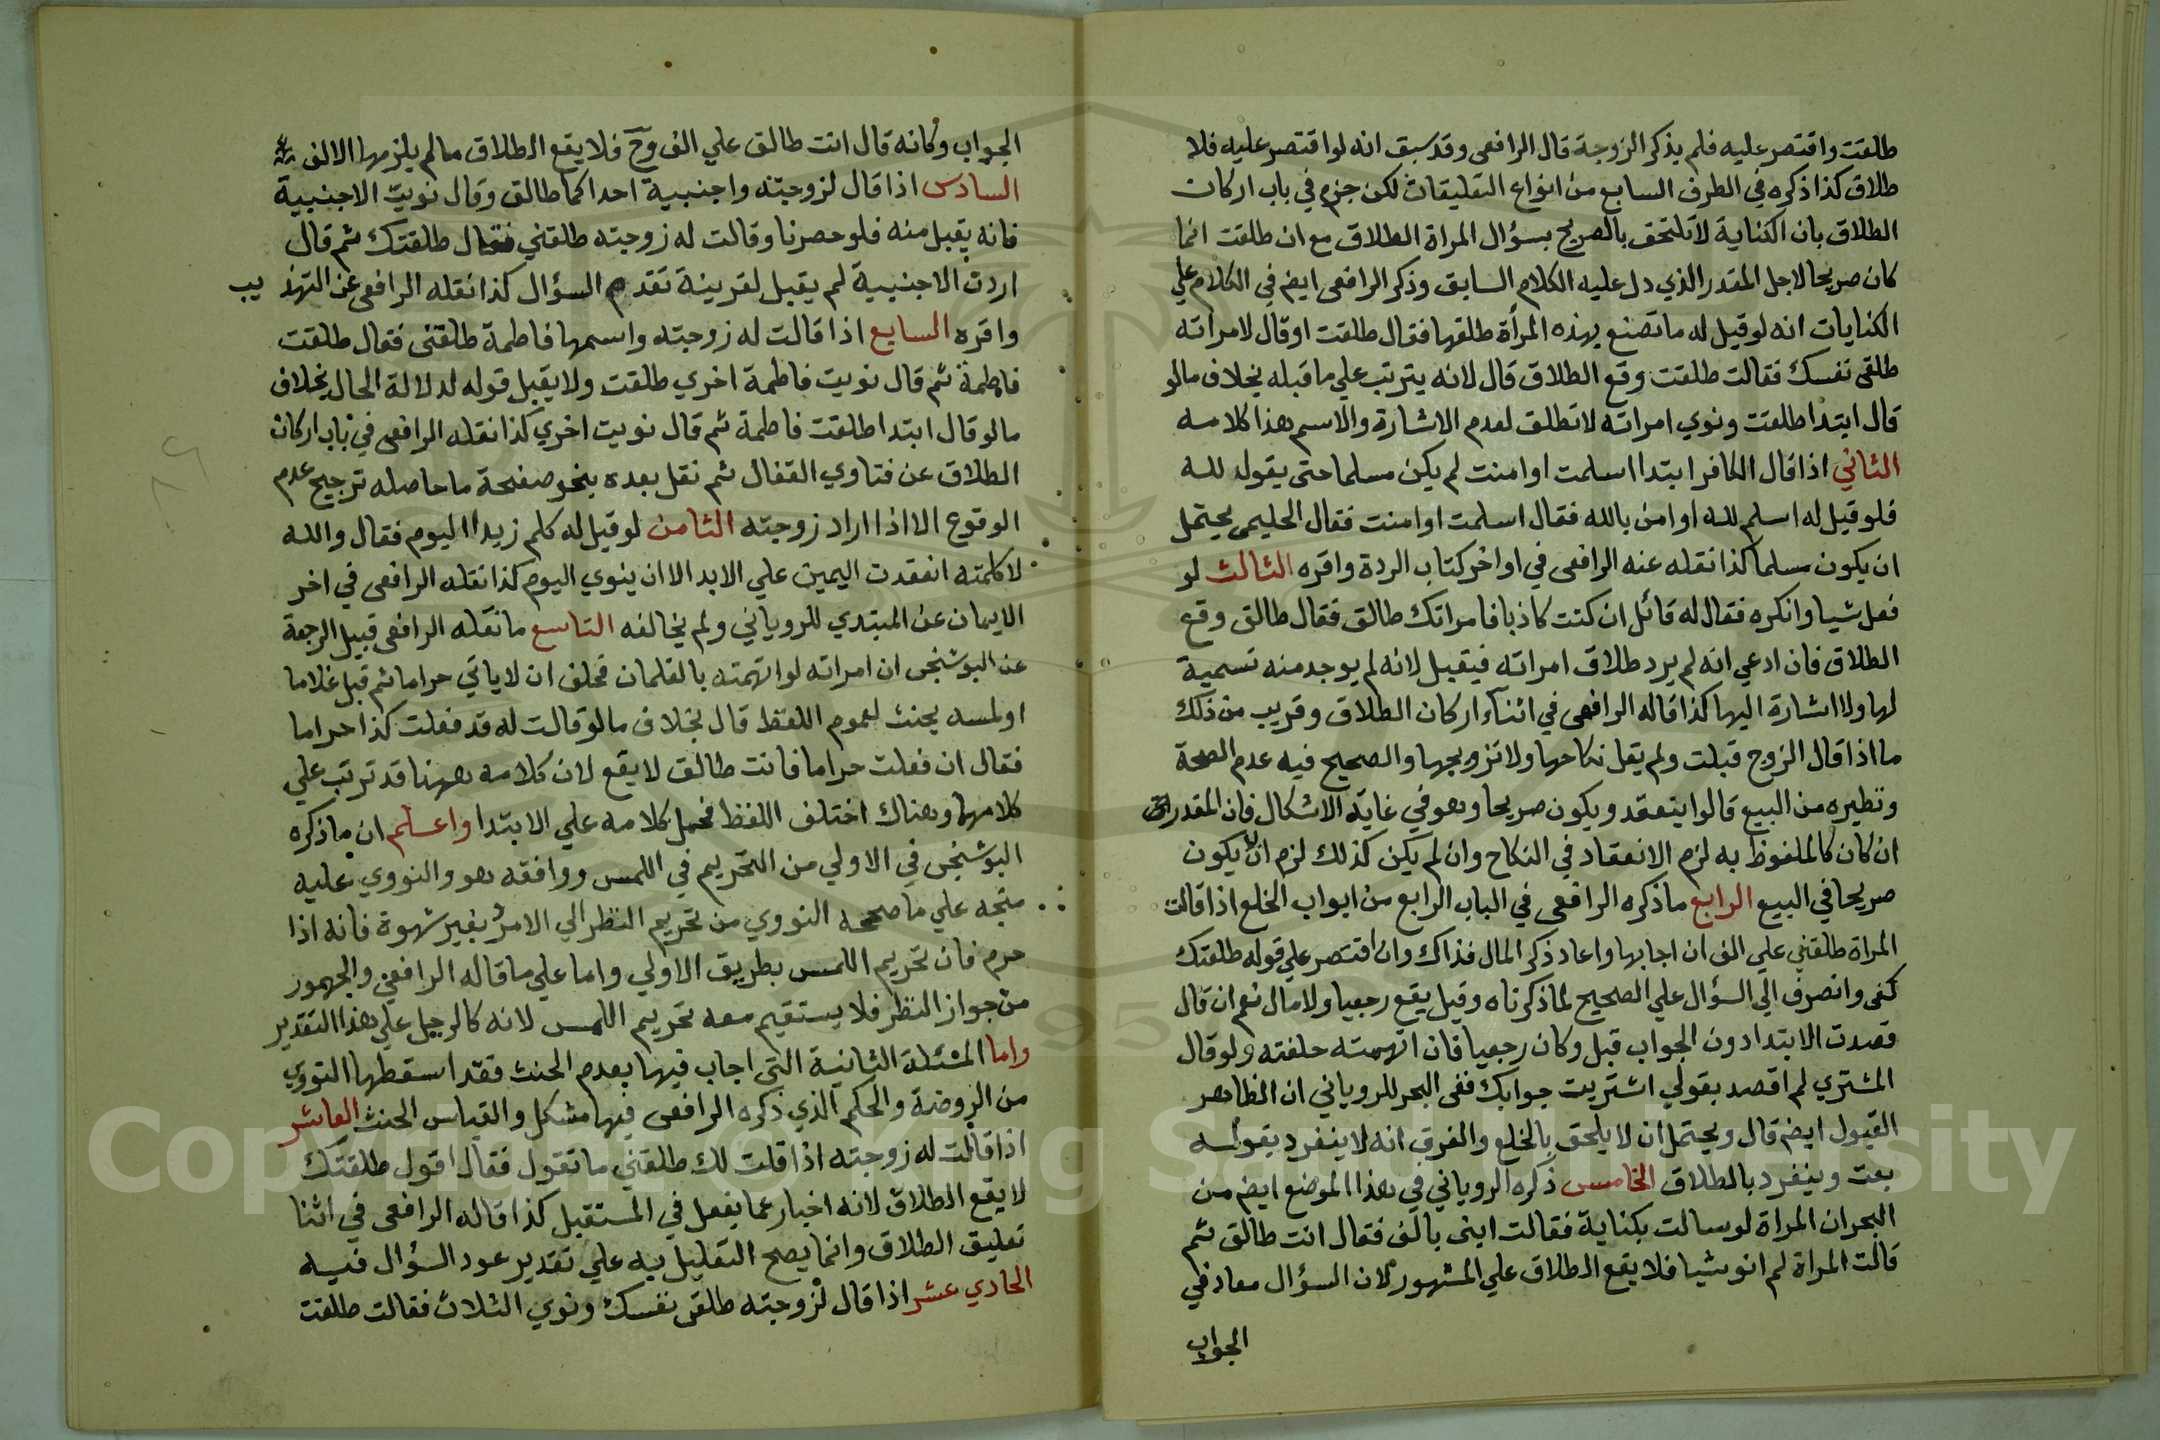 طلقت واقتصر عليه فلم يذكر الزوجة قال الرافعى وقد سبق انه لو اقتصر عليه فلا
طلاق كذا ذكره في الطرف السابع من انواع التعليقات لكن جزم في باب اركان
الطلاق بان الكناية لا تلتحق بالصريح بسؤال المراة الطلاق مع ان طلقت انما
كان صريحا لاجل المقدر الذي دل عليه الكلام السابق وذكر الرافعى ايضم في الكلام علي
الكنايات انه لو قيل له ما تصنع بهذه المرأة طلقها فقال طلقت او قال لامراته
طلقى نفسك فقالت طلقت وقع الطلاق قال لانه يترتب علي ما قبله بخلاف ما لو
قال ابتدا طلقت ونوي امراته لا تطلق لعدم الاشارة والاسم هذا كلامه
الثاني اذا قال الكافر ابتدا اسلمت او امنت لم يكن مسلما حتى يقوله لله
فلو قيل له اسلم لله او امن بالله فقال اسلمت او امنت فقال الحليمى يحتمل
ان يكون مسلما كذا نقله عنه الرافعى في اواخر كتاب الردة واقره الثالث لو
فعل شيا وانكره فقال له قائل ان كنت كاذبا فامراتك طالق فقال طالق وقع
الطلاق فان ادعي انه لم يرد طلاق امراته فيقبل لانه لم يوجد منه تسمية
لها ولا اشارة اليها كذا قاله الرافعى في اثنآء اركان الطلاق وقريب من ذلك
ما اذا قال الزوج قبلت ولم يقل نكاحها ولا تزويجها والصحيح فيه عدم الصحة
ونظيره من البيع قالوا ينعقد ويكون صريحا وهو في غاية الاشكال فان المقدر
ان كان كالملفوظ به لزم الانعقاد في النكاح وان لم يكن كذلك لزم ان لا يكون
صريحا في البيع الرابع ما ذكره الرافعى في الباب الرابع من ابواب الخلع اذا قالت
المراة طلقني علي الف ان اجابها واعاد ذكر المال فذاك وان اقتصر علي قوله طلقتك
كفى وانصرف الي السؤال علي الصحيح لما ذكرناه وقيل يقع رجعيا ولا مال نعم ان قال
قصدت الابتدا دون الجواب قبل وكان رجعيا فان اتهمته حلفته ولو قال
المشتري لم اقصد بقولي اشتريت جوابك ففى البحر للروياني ان الظاهر
القبول ايضم قال ويحتمل ان لا يلحق بالخلع والفرق انه لا ينفرد بقوله
بعت وينفرد بالطلاق الخامس ذكره الروياني في هذا الموضع ايضم من
البحر ان المراة لو سالت بكناية فقالت ابنى بالف فقال انت طالق ثم
قالت المراة لم انو شيا فلا يقع الطلاق علي المشهور لان السؤال معاد في
الجواب
الجواب وكانه قال انت طالق علي الف وح فلا يقع الطلاق ما لم يلزمها الالف
السادس اذا قال لزوجته واجنبية احداكما طالق وقال نويت الاجنبية
فانه يقبل منه فلو حصرنا وقالت له زوجته طلقني فقال طلقتك ثم قال
اردت الاجنبية لم يقبل لقرينة تقدم السؤال كذا نقله الرافعى عن التهذيب
واقره السابع اذا قالت له زوجته واسمها فاطمة طلقنى فقال طلقت
فاطمة ثم قال نويت فاطمة اخري طلقت ولا يقبل قوله لدلالة الحال بخلاف
ما لو قال ابتدا طلقت فاطمة ثم قال نويت اخري كذا نقله الرافعى في باب اركان
الطلاق عن فتاوي القفال ثم نقل بعده بنحو صفحة ما حاصله ترجيح عدم
الوقوع الا اذا اراد زوجته الثامن لو قيل له كلم زيدا اليوم فقال والله
لا كلمته انعقدت اليمين علي الابد الا ان ينوي اليوم كذا نقله الرافعى في اخر
الايمان عن المبتدي للروياني ولم يخالفه التاسع ما نقله الرافعى قبيل الرجعة
عن البوشنجى ان امراته لو اتهمته بالغلمان فحلف ان لا ياتي حراما ثم قبل غلاما
او لمسه يحنث لعموم اللفظ قال بخلاف ما لو قالت له قد فعلت كذا حراما
فقال ان فعلت حراما فانت طالق لا يقع لان كلامه ههنا قد ترتب علي
كلامها وهناك اختلف اللفظ فحمل كلامه علي الابتدا واعلم ان ما ذكره
البوشنجى في الاولي من التحريم في اللمس ووافقه هو والنووي عليه
متجه علي ما صححه النووي من تحريم النظر الي الامرد بغير شهوة فانه اذا
حرم فان تحريم اللمس بطريق الاولي واما علي ما قاله الرافعى والجمهور
من جواز النظر فلا يستقيم معه تحريم اللمس لانه كالرجل علي هذا التقدير
واما المسئلة الثانية التى اجاب فيها بعدم الحنث فقد اسقطها النووي
من الروضة والحكم الذي ذكره الرافعى فيها مشكل والقياس الحنث العاشر
اذا قالت له زوجته اذا قلت لك طلقني ما تقول فقال اقول طلقتك
لا يقع الطلاق لانه اخبار عما يفعل في المستقبل كذا قاله الرافعى في اثنا
تعليق الطلاق وانما يصح التعليل به علي تقدير عود السؤال فيه
الحادي عشر اذا قال لزوجته طلقى نفسك ونوي الثلاث فقالت طلقت
Copyright © King Saud University